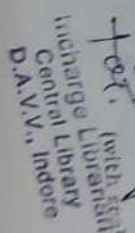 for.
(with
Incharge Librarian
Central Library
D.A.V.V., Indore